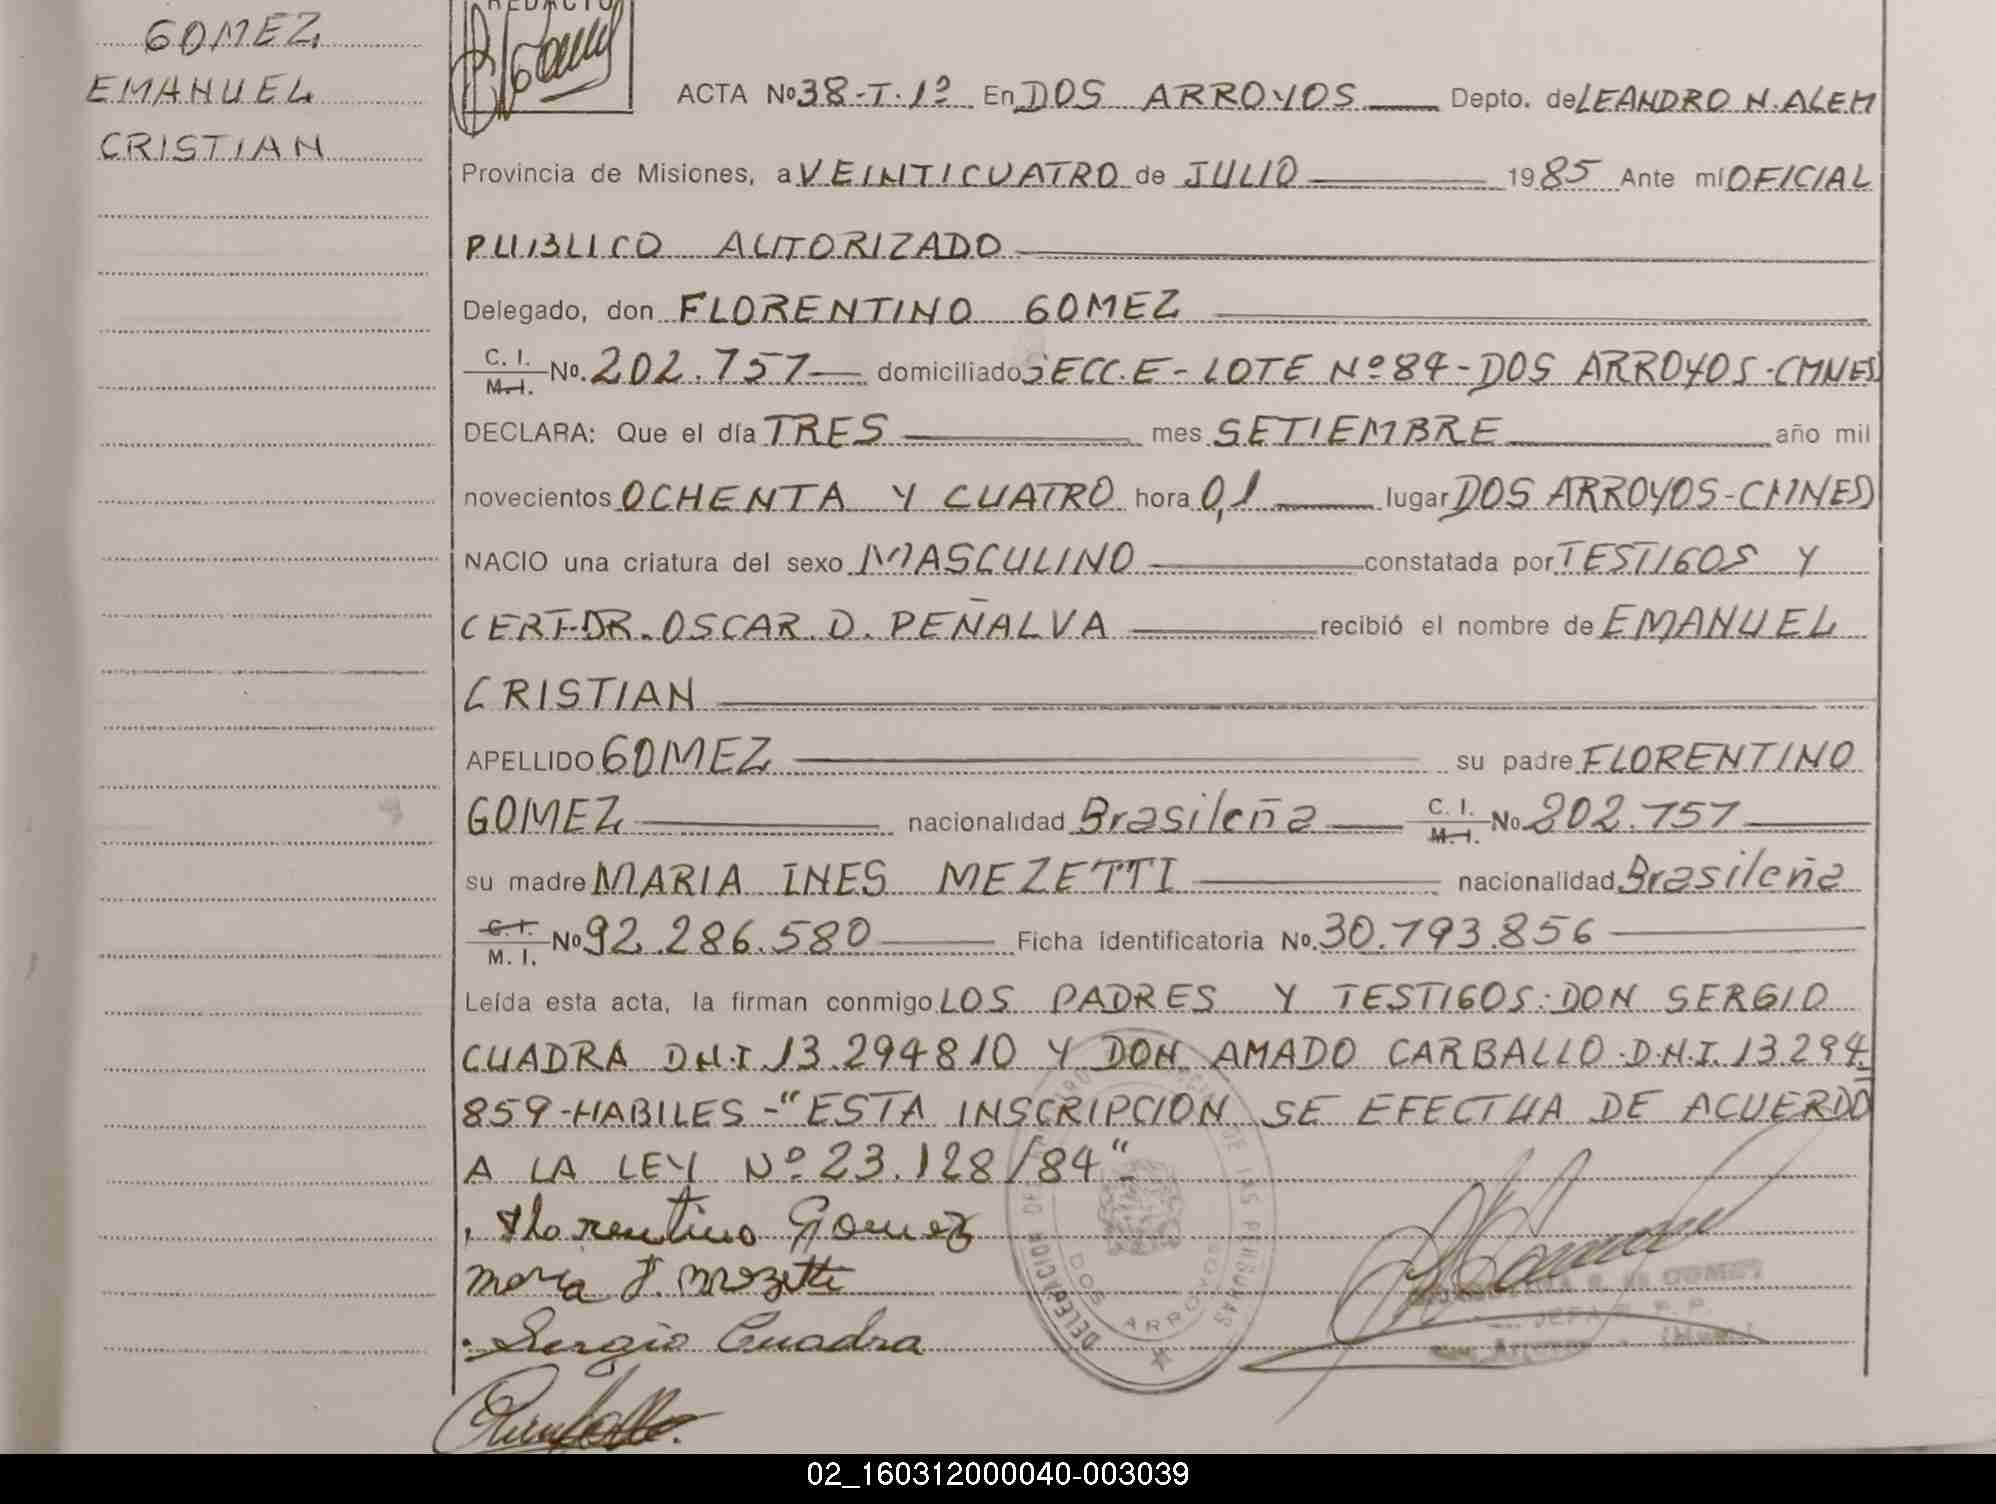 GOMEZ
EMANUEL
CRISTIAN
ACTA No 38-T.1º En DOS ARROYOS Depto. de LEANDRO N. ALEM
Provincia de Misiones, a VEINTICUATRO de JULIO 1985 Ante mí OFICIAL
PUBLICO AUTORIZADO
Delegado, don FLORENTINO GOMEZ
C. I. M. I. No. 202.757 domiciliado SECC.E - LOTE Nº 84 - DOS ARROYOS - CMNES
DECLARA: Que el día TRES mes SETIEMBRE año mil
novecientos OCHENTA Y CUATRO hora 0,1 lugar DOS ARROYOS - CMNES
NACIO una criatura del sexo MASCULINO constatada por TESTIGOS Y
CERT-DR. OSCAR D. PEÑALVA recibió el nombre de EMANUEL
CRISTIAN
APELLIDO GOMEZ su padre FLORENTINO
GOMEZ nacionalidad Brasileña C. I. M. I. No 202.757
su madre MARIA INES MEZETTI nacionalidad Brasileña
C. I. M. I. No 92.286.580 Ficha identificatoria No. 30.793.856
Leída esta acta, la firman conmigo LOS PADRES Y TESTIGOS: DON SERGIO
CUADRA D.N.I. 13.294810 Y DON AMADO CARBALLO D.N.I. 13.294.
859-HABILES-"ESTA INSCRIPCION SE EFECTUA DE ACUERDO
A LA LEY Nº 23.128/84"
Florentino Gomez
Maria I. Mezetti
Sergio Cuadra
DELEGACION DE LAS PERSONAS
DOS ARROYOS
JEFA R. P. P.
02_160312000040-003039